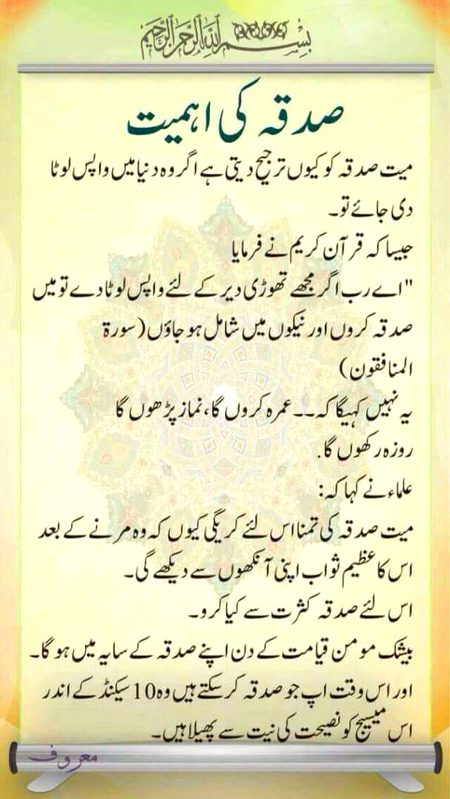 بسم اللہ الرحمن الرحیم
صدقہ کی اہمیت
میت صدقہ کو کیوں ترجیح دیتی ہے اگر وہ دنیا میں واپس لوٹا
دی جائے تو۔
جیسا کہ قرآن کریم نے فرمایا
"اے رب اگر مجھے تھوڑی دیر کے لئے واپس لوٹا دے تو میں
صدقہ کروں اور نیکوں میں شامل ہو جاؤں (سورة
المنافقون)
یہ نہیں کہیگا کہ۔۔۔ عمرہ کروں گا، نماز پڑھوں گا
روزہ رکھوں گا.
علماء نے کہا کہ:
میت صدقہ کی تمنا اس لئے کریگی کیوں کہ وہ مرنے کے بعد
اس کا عظیم ثواب اپنی آنکھوں سے دیکھے گی۔
اس لئے صدقہ کثرت سے کیا کرو۔
بیشک مومن قیامت کے دن اپنے صدقہ کے سایہ میں ہو گا۔
اور اس وقت اپ جو صدقہ کر سکتے ہیں وہ 10 سیکنڈ کے اندر
اس میسیج کو نصیحت کی نیت سے پھیلا ہیں۔
معروف